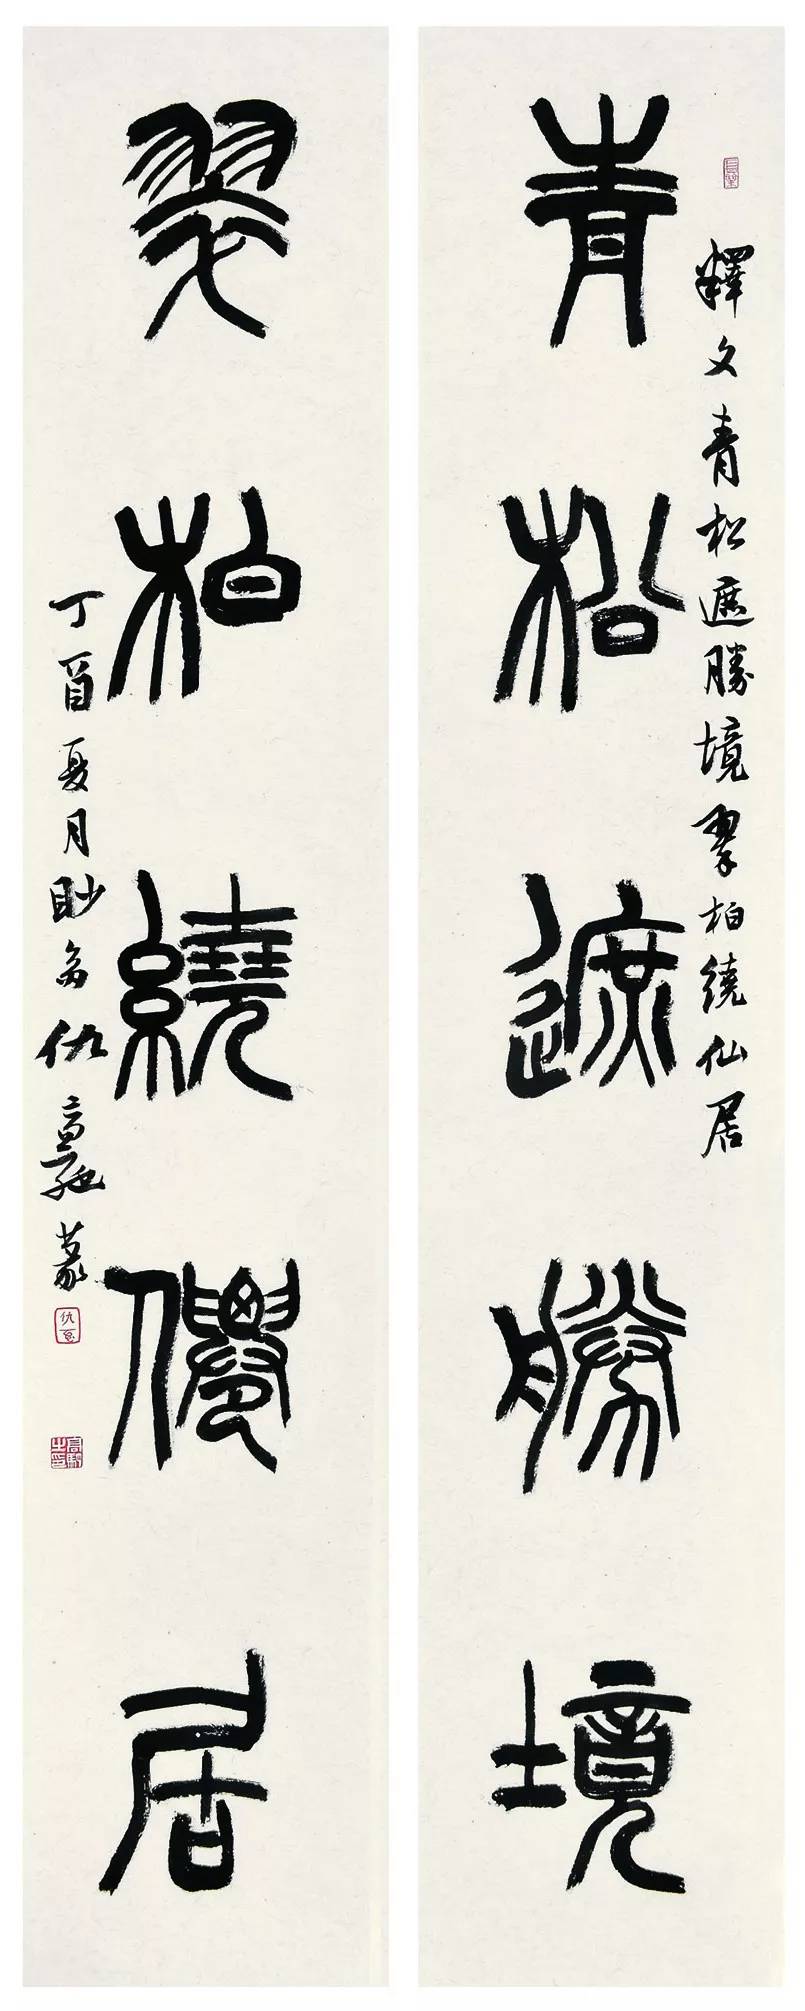 釋文青松遮勝境翠柏繞仙居
青松遮勝境
翠柏繞僊居
丁酉夏月眇仇高馳篆